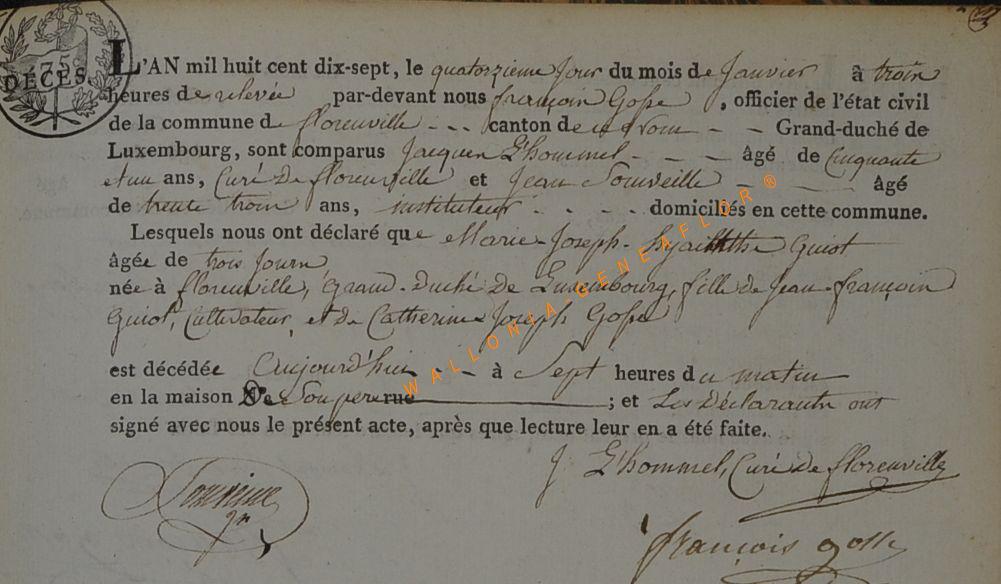 75
DÉCÈS.
L'AN mil huit cent dix-sept, le quatorzieme Jour du mois de Janvier à trois
heures de relevée par-devant nous françois Gosse, officier de l'état civil
de la commune de florenville - - - canton de - - Grand-duché de
Luxembourg, sont comparus Jacques L'hommel - - - âgé de Cinquante
et un ans, Curé De florenville et Jean - âgé
de trente trois ans, instituteur - - - - domiciliés en cette commune.
Lesquels nous ont déclaré que Marie-Joseph-hyacinthe Guiot
âgée de trois Jours
née à florenville, Grand-Duché De Luxembourg, fille de Jean-françois
Guiot, Cultivateur, et de Catherine Joseph Gosse
est décédée Aujourd'hui - - à Sept heures du matin
en la maison De Son pere rue ; et Les Déclarants ont
signé avec nous le présent acte, après que lecture leur en a été faite.
J. L'hommel, Curé de florenville
françois gosse
WALLONIA-GENEAFLOR®